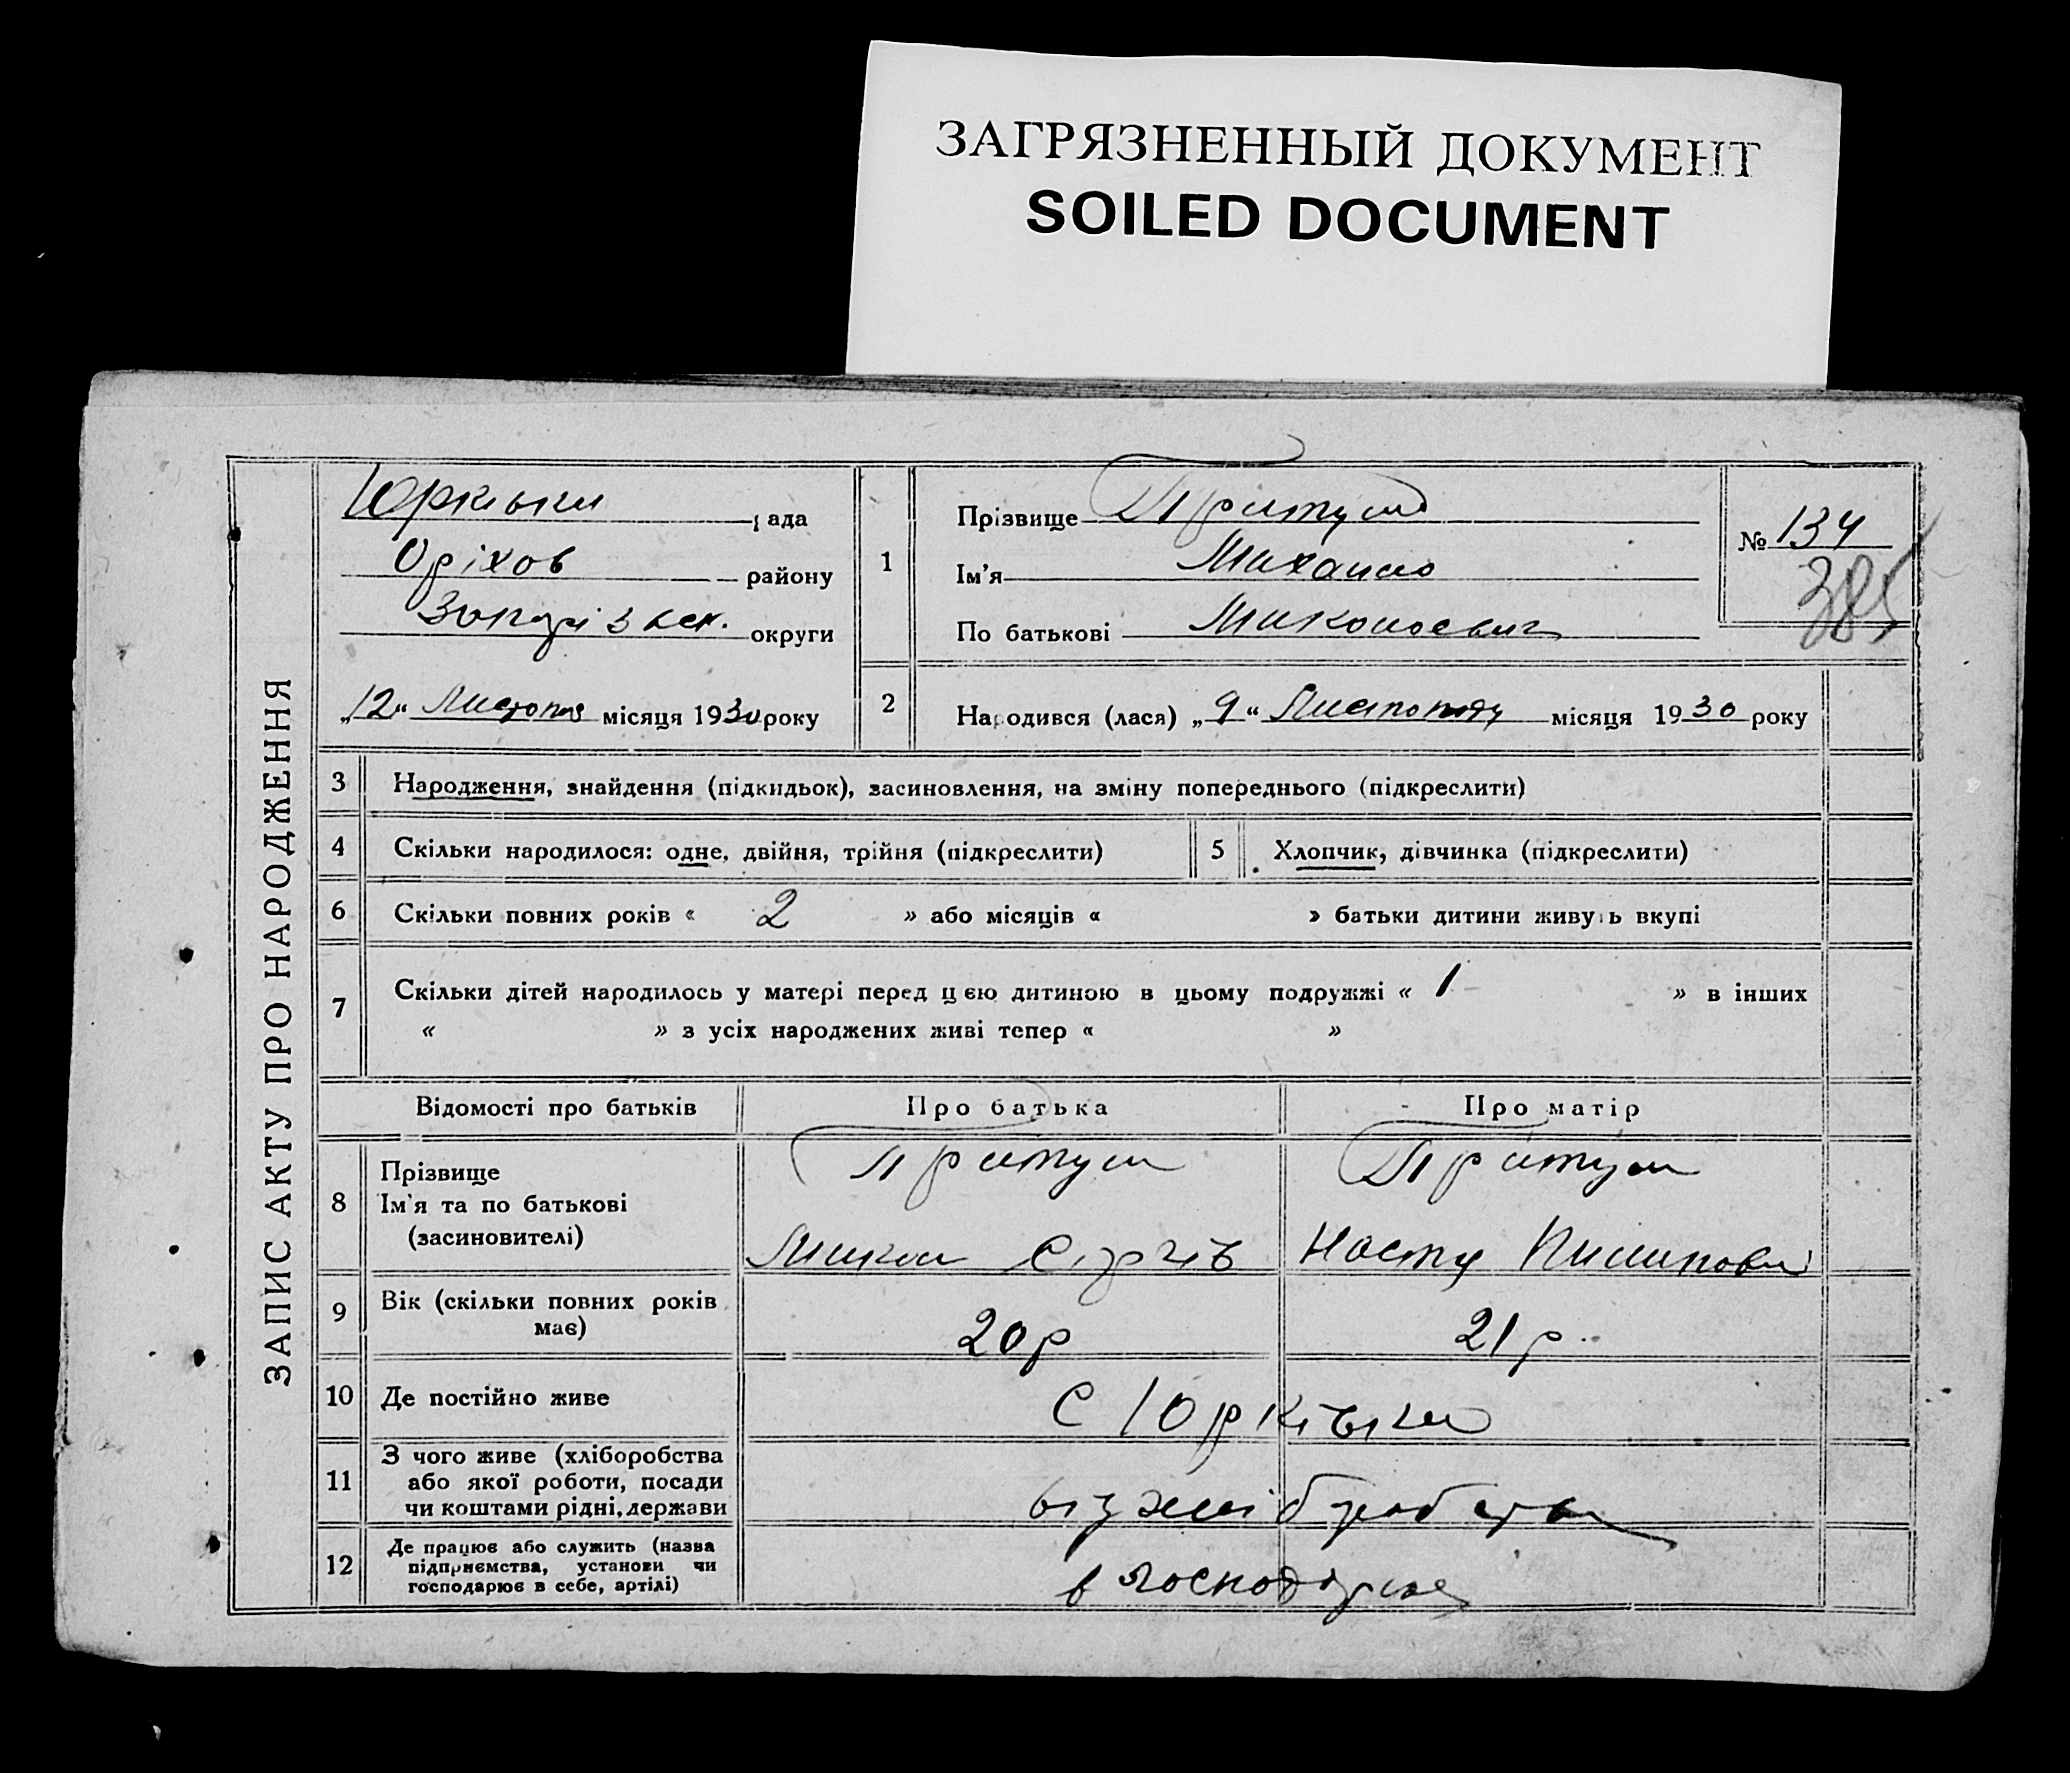 ЗАГРЯЗНЕННЫЙ ДОКУМЕНТ
SOILED DOCUMENT
ЗАПИС АКТУ ПРО НАРОДЖЕННЯ
Юрківки рада
Оріхов району
Запорізьк. округи
„12“ Листопад місяця 1930 року
1
Прізвище Притула
Ім’я Михайло
По батькові Миколаєвич
№ 134
385
2
Народився (лася) „9“ Листопаду місяця 1930 року
3 Народження, знайдення (підкидьок), засиновлення, на зміну попереднього (підкреслити)
4 Скільки народилося: одне, двійня, трійня (підкреслити)
5 Хлопчик, дівчинка (підкреслити)
6 Скільки повних років « 2 » або місяців « » батьки дитини живуть вкупі
7 Скільки дітей народилось у матері перед цією дитиною в цьому подружжі « 1 » в інших
« » з усіх народжених живі тепер « »
Відомості про батьків Про батька Про матір
8 Прізвище
Ім’я та по батькові
(засиновителі)
Притула
Микола Сергієв
Притула
Настя Пилипов
9 Вік (скільки повних років
має)
20 р
21 р.
10 Де постійно живе
С Юрківка
11 З чого живе (хліборобства
або якої роботи, посади
чи коштами рідні, держави
від хліборобства
12 Де працює або служить (назва
підприємства, установи чи
господарює в себе, артілі)
в господарстві